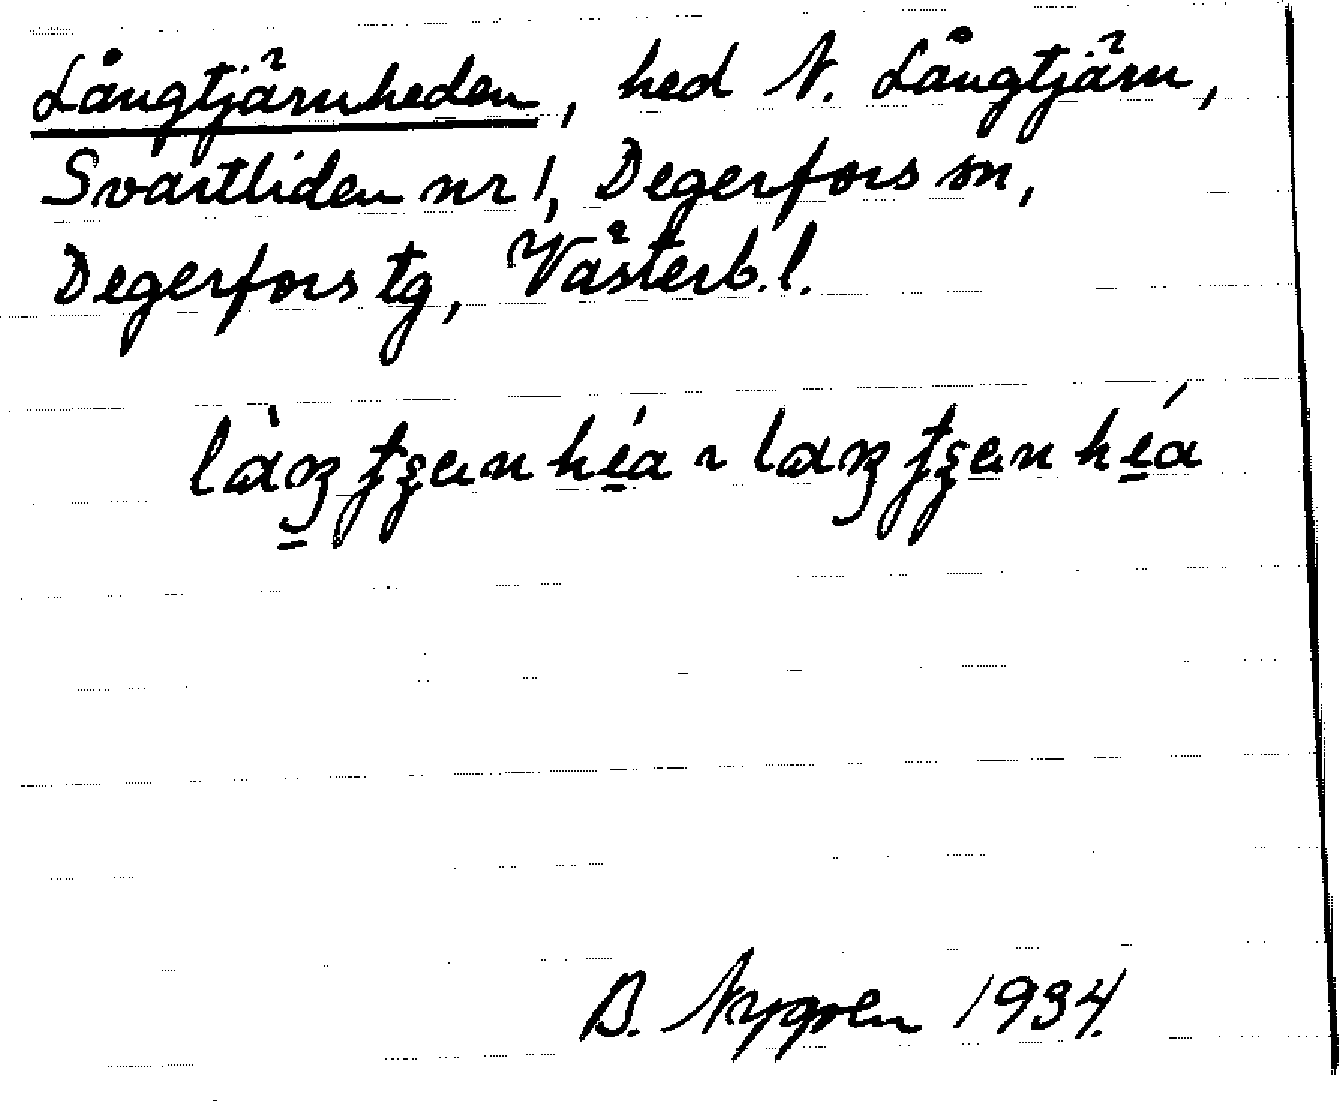 Långtjärnheden, hed N. Långtjärn,
Svartliden nr 1, Degerfors sn,
Degerfors tg, Västerb. l.
B. Nygren 1934.